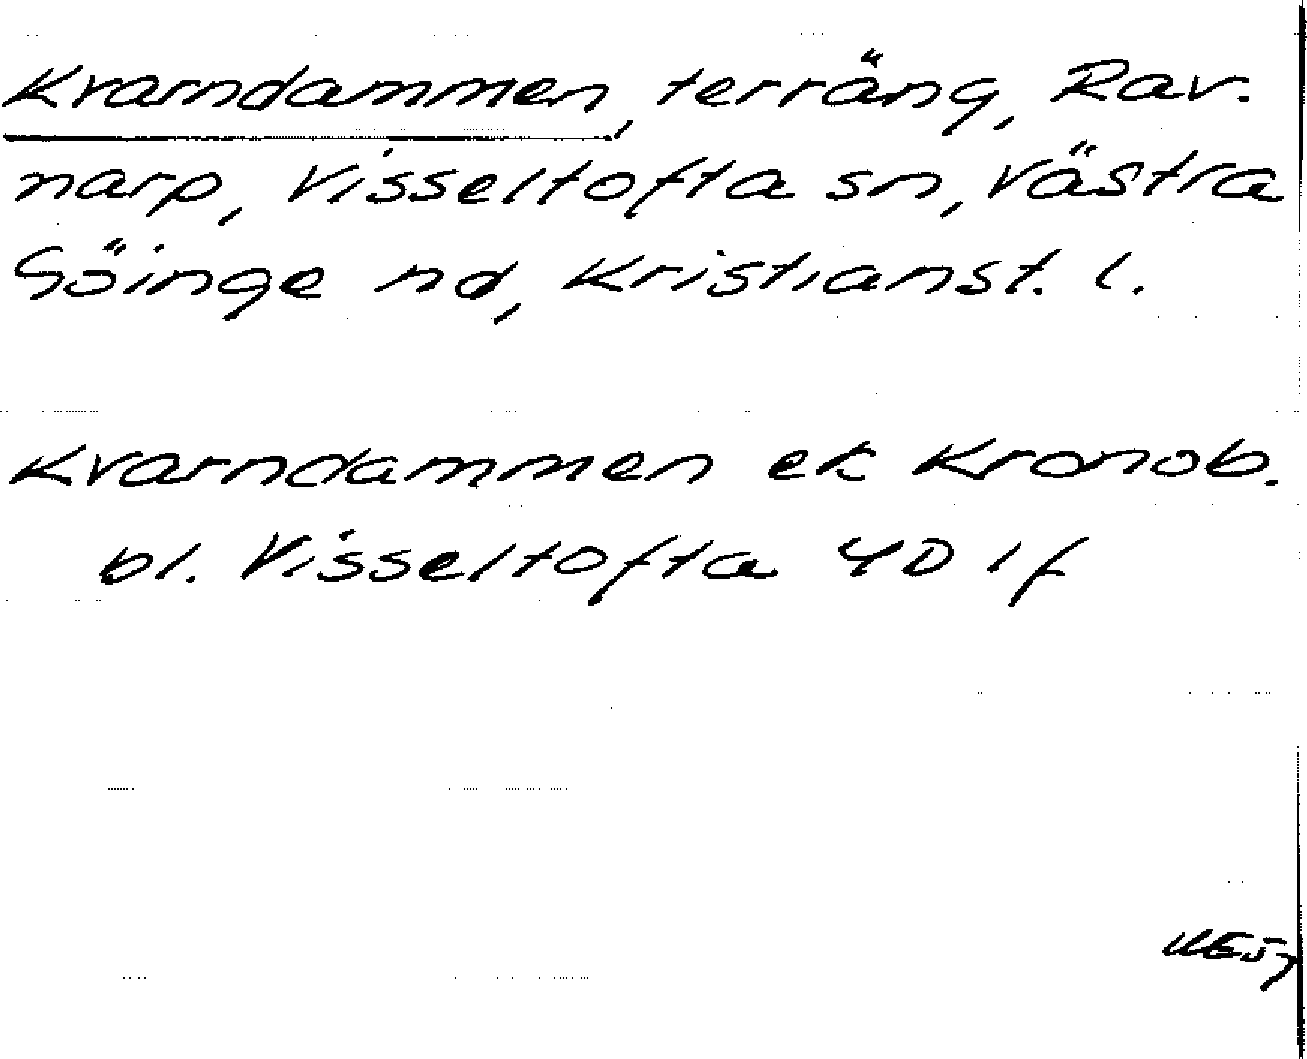 Kvarndammen, terräng, Rav-
narp, Visseltofta sn, Västra
Göinge hd, Kristianst. l.
Kvarndammen ek Kronob.
bl. Visseltofta 4D 1f